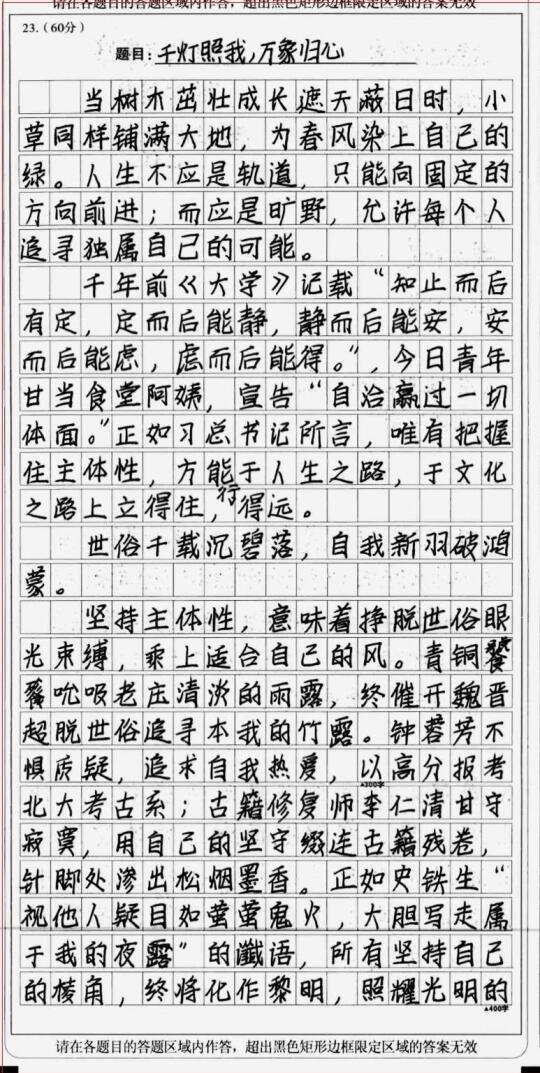 请在各题目的答题区域内作答，超出黑色矩形边框限定区域的答案无效
23.（60分）
题目：千灯照我，万象归心
当树木茁壮成长遮天蔽日时，小
草同样铺满大地，为春风染上自己的
绿。人生不应是轨道，只能向固定的
方向前进；而应是旷野，允许每个人
追寻独属自己的可能。
千年前《大学》记载“知止而后
有定，定而后能静，静而后能安，安
而后能虑，虑而后能得。”，今日青年
甘当食堂阿姨，宣告“自洽赢过一切
体面。”正如习总书记所言，唯有把握
住主体性，方能于人生之路，于文化
之路上立得住，行得远。
世俗千载沉碧落，自我新羽破鸿
蒙。
坚持主体性，意味着挣脱世俗眼
光束缚，乘上适合自己的风。青铜饕
餮吮吸老庄清淡的雨露，终催开魏晋
超脱世俗追寻本我的竹露。钟蓉芳不
惧质疑，追求自我热爱，以高分报考
▲300字
北大考古系；古籍修复师李仁清甘守
寂寞，用自己的坚守缀连古籍残卷，
针脚处渗出松烟墨香。正如史铁生“
视他人疑目如萤萤鬼火，大胆写走属
于我的夜露”的谶语，所有坚持自己
的棱角，终将化作黎明，照耀光明的
▲400字
请在各题目的答题区域内作答，超出黑色矩形边框限定区域的答案无效